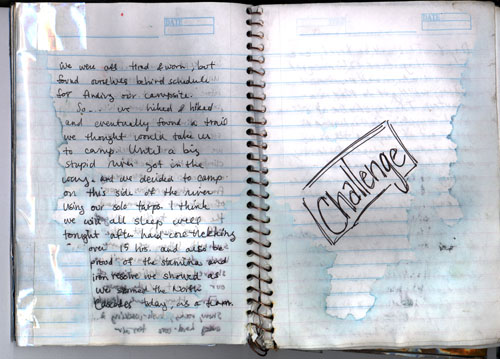 DATE
We were all tired & worn, but
found ourselves behind schedule
for finding our campsite.
So... we hiked & hiked
and eventually found a trail
we thought would take us
to camp. Until a big
stupid river got in the
way. and we decided to camp
on this side of the river
using our solo tarps. I think
we will all sleep well
tonight after hard-core trekking
over 15 hrs. and also be
proud of the stamina and
iron resolve we showed as
we roamed the North
Cascades today, as a team
DATE
Challenge